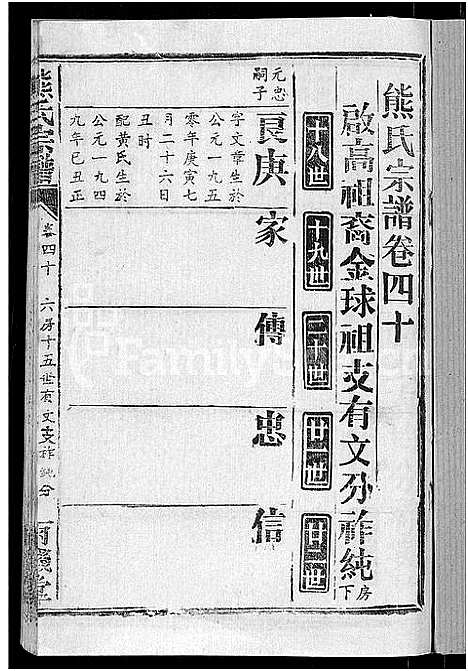 熊氏宗譜卷四十
啟高祖裔金球祖支有文分祚純房下
十八世 十九世 二十世 廿一世 廿二世
良庚 家 傳 忠 信
元忠
嗣子
字文章生於
公元一九五
零年庚寅七
月二十六日
丑时
配黄氏生於
公元一九四
九年己丑正
熊氏宗譜
卷四十 六房十五世有文支祚純分